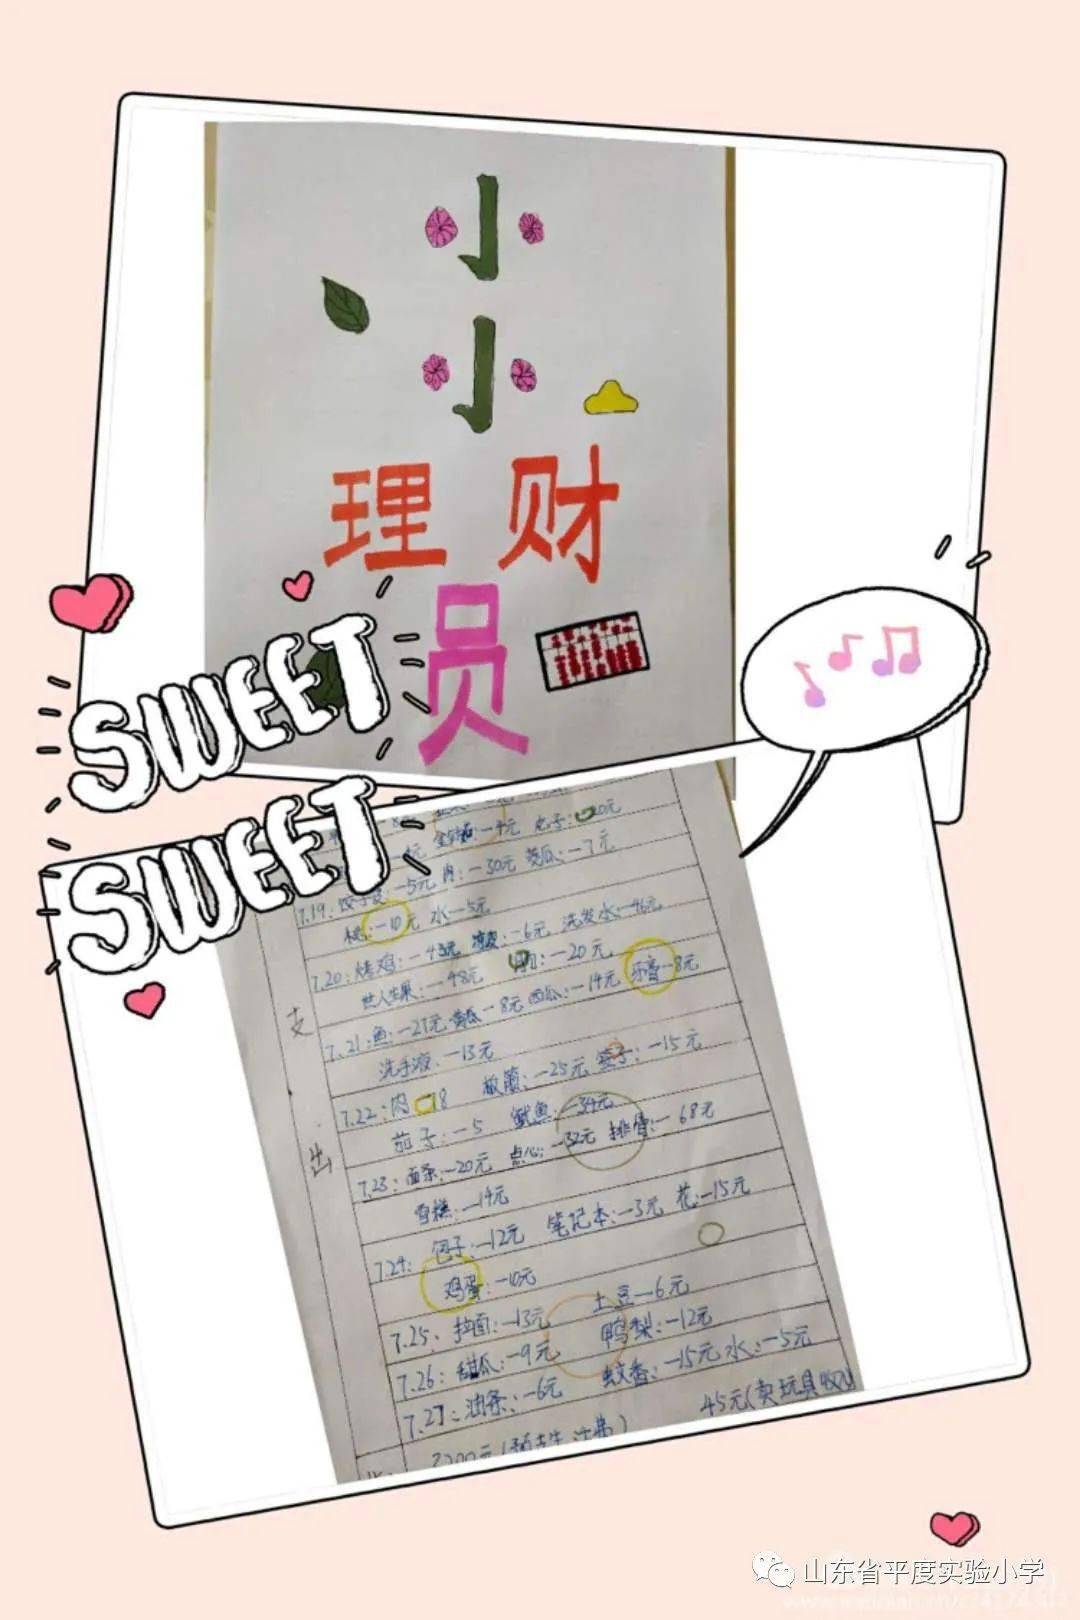 小
小
理财
员
SWEET
SWEET
-4元
7.19: 饺子皮:-5元 肉:-30元 茭瓜:-7元
桃:-10元 水-5元
7.20: 烤鸡:-43元 -6元 洗发水-46元
世人生果:-48元 -20元
7.21: 鱼:-27元 黄瓜-8元 西瓜:-14元 牙膏-8元
洗手液:-13元
7.22: 肉 18 -25元 -15元
茄子:-5 鱿鱼:-34元
7.23: 面条:-20元 点心:-32元 排骨:-68元
雪糕:-14元
7.24: 包子:-12元 笔记本:-3元 花:-15元
鸡蛋:-10元
7.25: 拉面:-13元 土豆-6元
7.26: 甜瓜:-9元 鸭梨:-12元
7.27: 油条:-6元 蚊香:-15元 水:-5元
45元(卖玩具
支
出
山东省平度实验小学